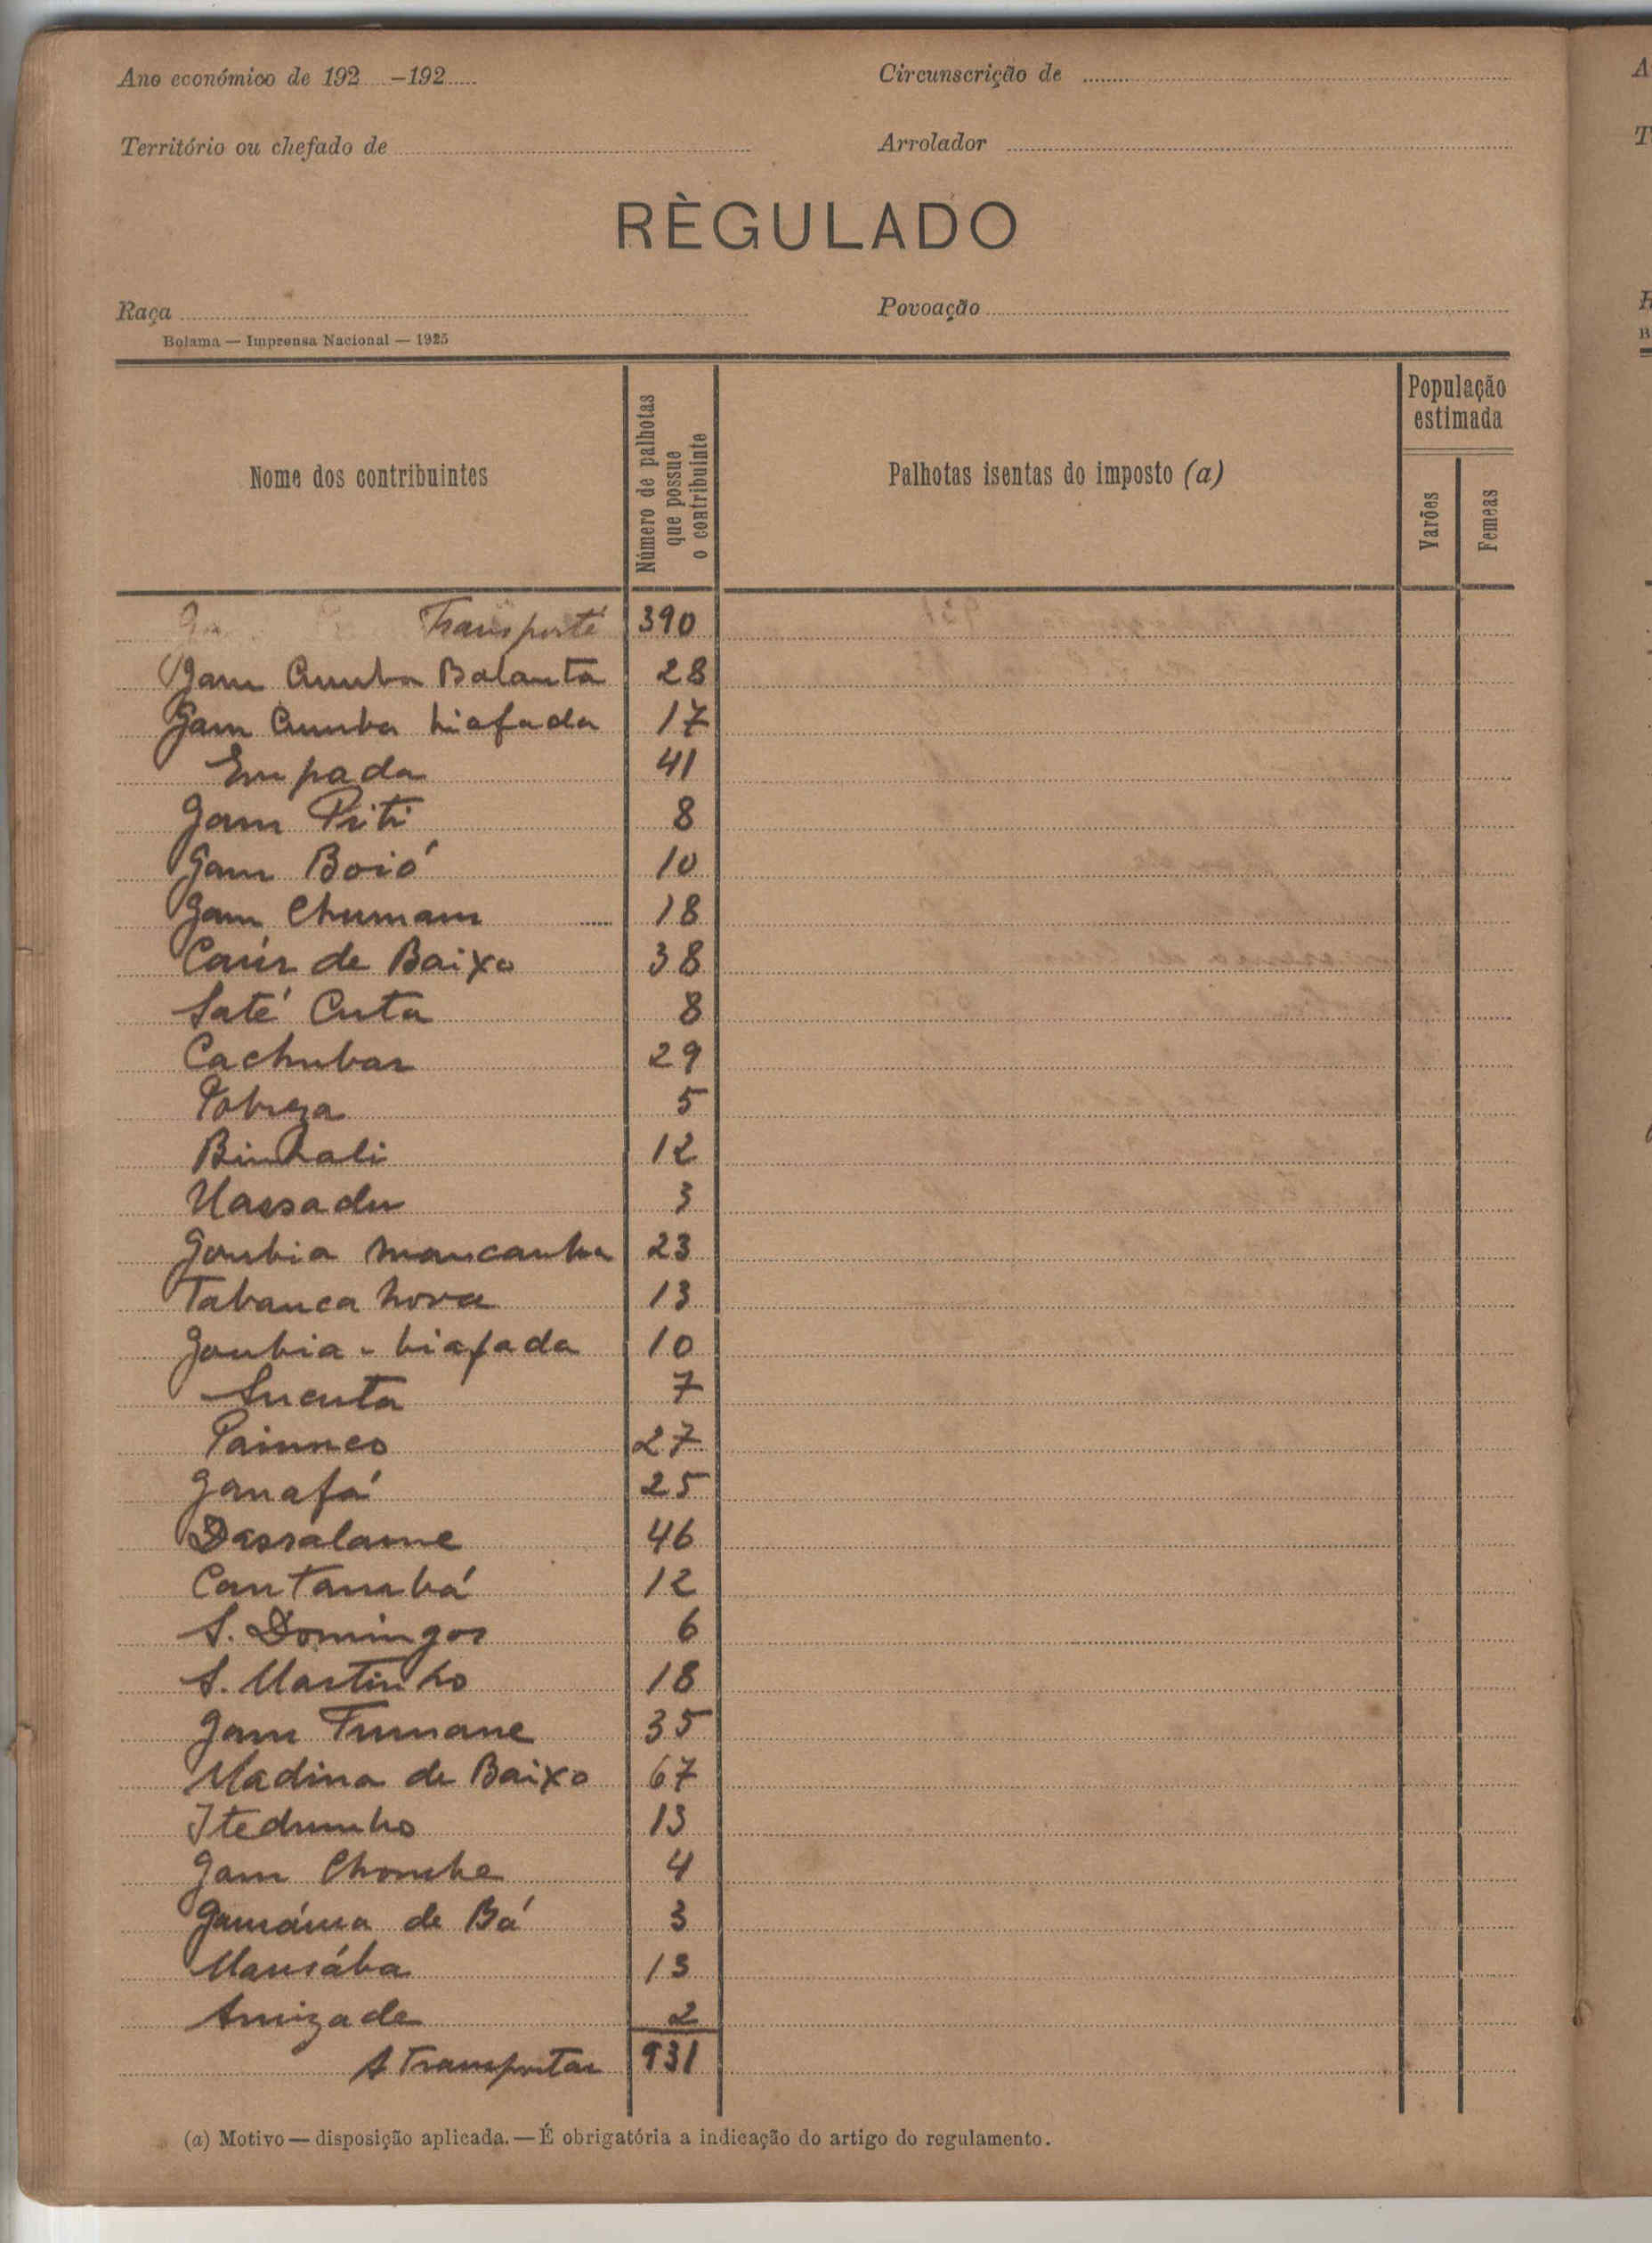 Ano económico de 192 -192
Circunscrição de
Território ou chefado de
Arrolador
RÈGULADO
Raça
Povoação
Bolama — Imprensa Nacional — 1925
Nome dos contribuintes
Número de palhotas que possue o contribuinte
Palhotas isentas do imposto (a)
População estimada
Varões
Femeas
Transporte 390
Gam Cumba Balanta 28
Gam Cumba biafada 17
Empada 41
Gam Priti 8
Gam Boió 10
Gam Chumam 18
Caúr de Baixo 38
Saté Cuta 8
Cachubar 29
Pobreza 5
Binhali 12
Uassadu 3
Goubia mancanha 23
Tabanca nova 13
Goubia - biafada 10
Sucuta 7
Paiunco 27
Ganafá 25
Dassalame 46
Cantambá 12
S. Domingos 6
S. Martinho 18
Gam Tumane 35
Madina de Baixo 67
Itedumho 13
Gam Chombe 4
Gamáma de Bá 3
Mansába 13
Amizade 2
A Transportar 931
(a) Motivo — disposição aplicada. — É obrigatória a indicação do artigo do regulamento.